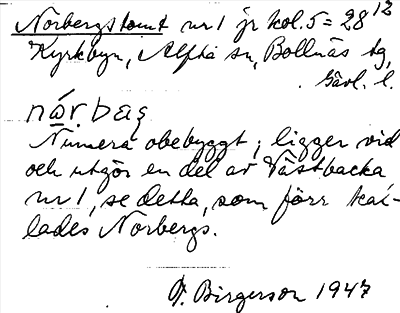 Norbergstomt nr 1 jr kol. 5 = 28¹²
Kyrkbyn, Alfta sn, Bollnäs tg,
Gävl. l.
nó̱r. bæȩ
Numera obebyggt; ligger vid
och utgör en del av Västbacka
nr 1, se detta, som förr kal-
lades Norbergs.
F. Birgerson 1947